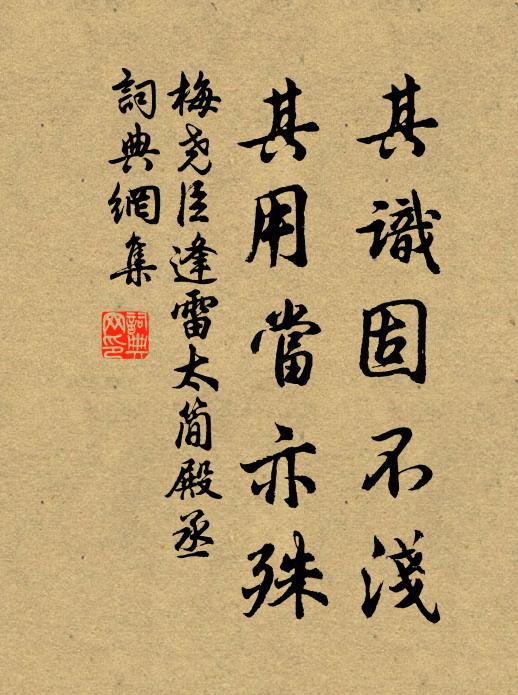 其識固不淺
其用當亦殊
梅尧臣逢雷太簡殿丞
詞典網集
詞典網印